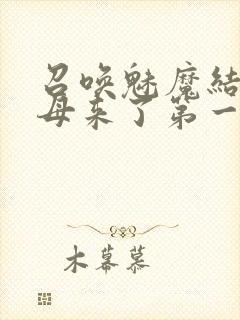 召唤魅魔結
母来了第一
木幕慕